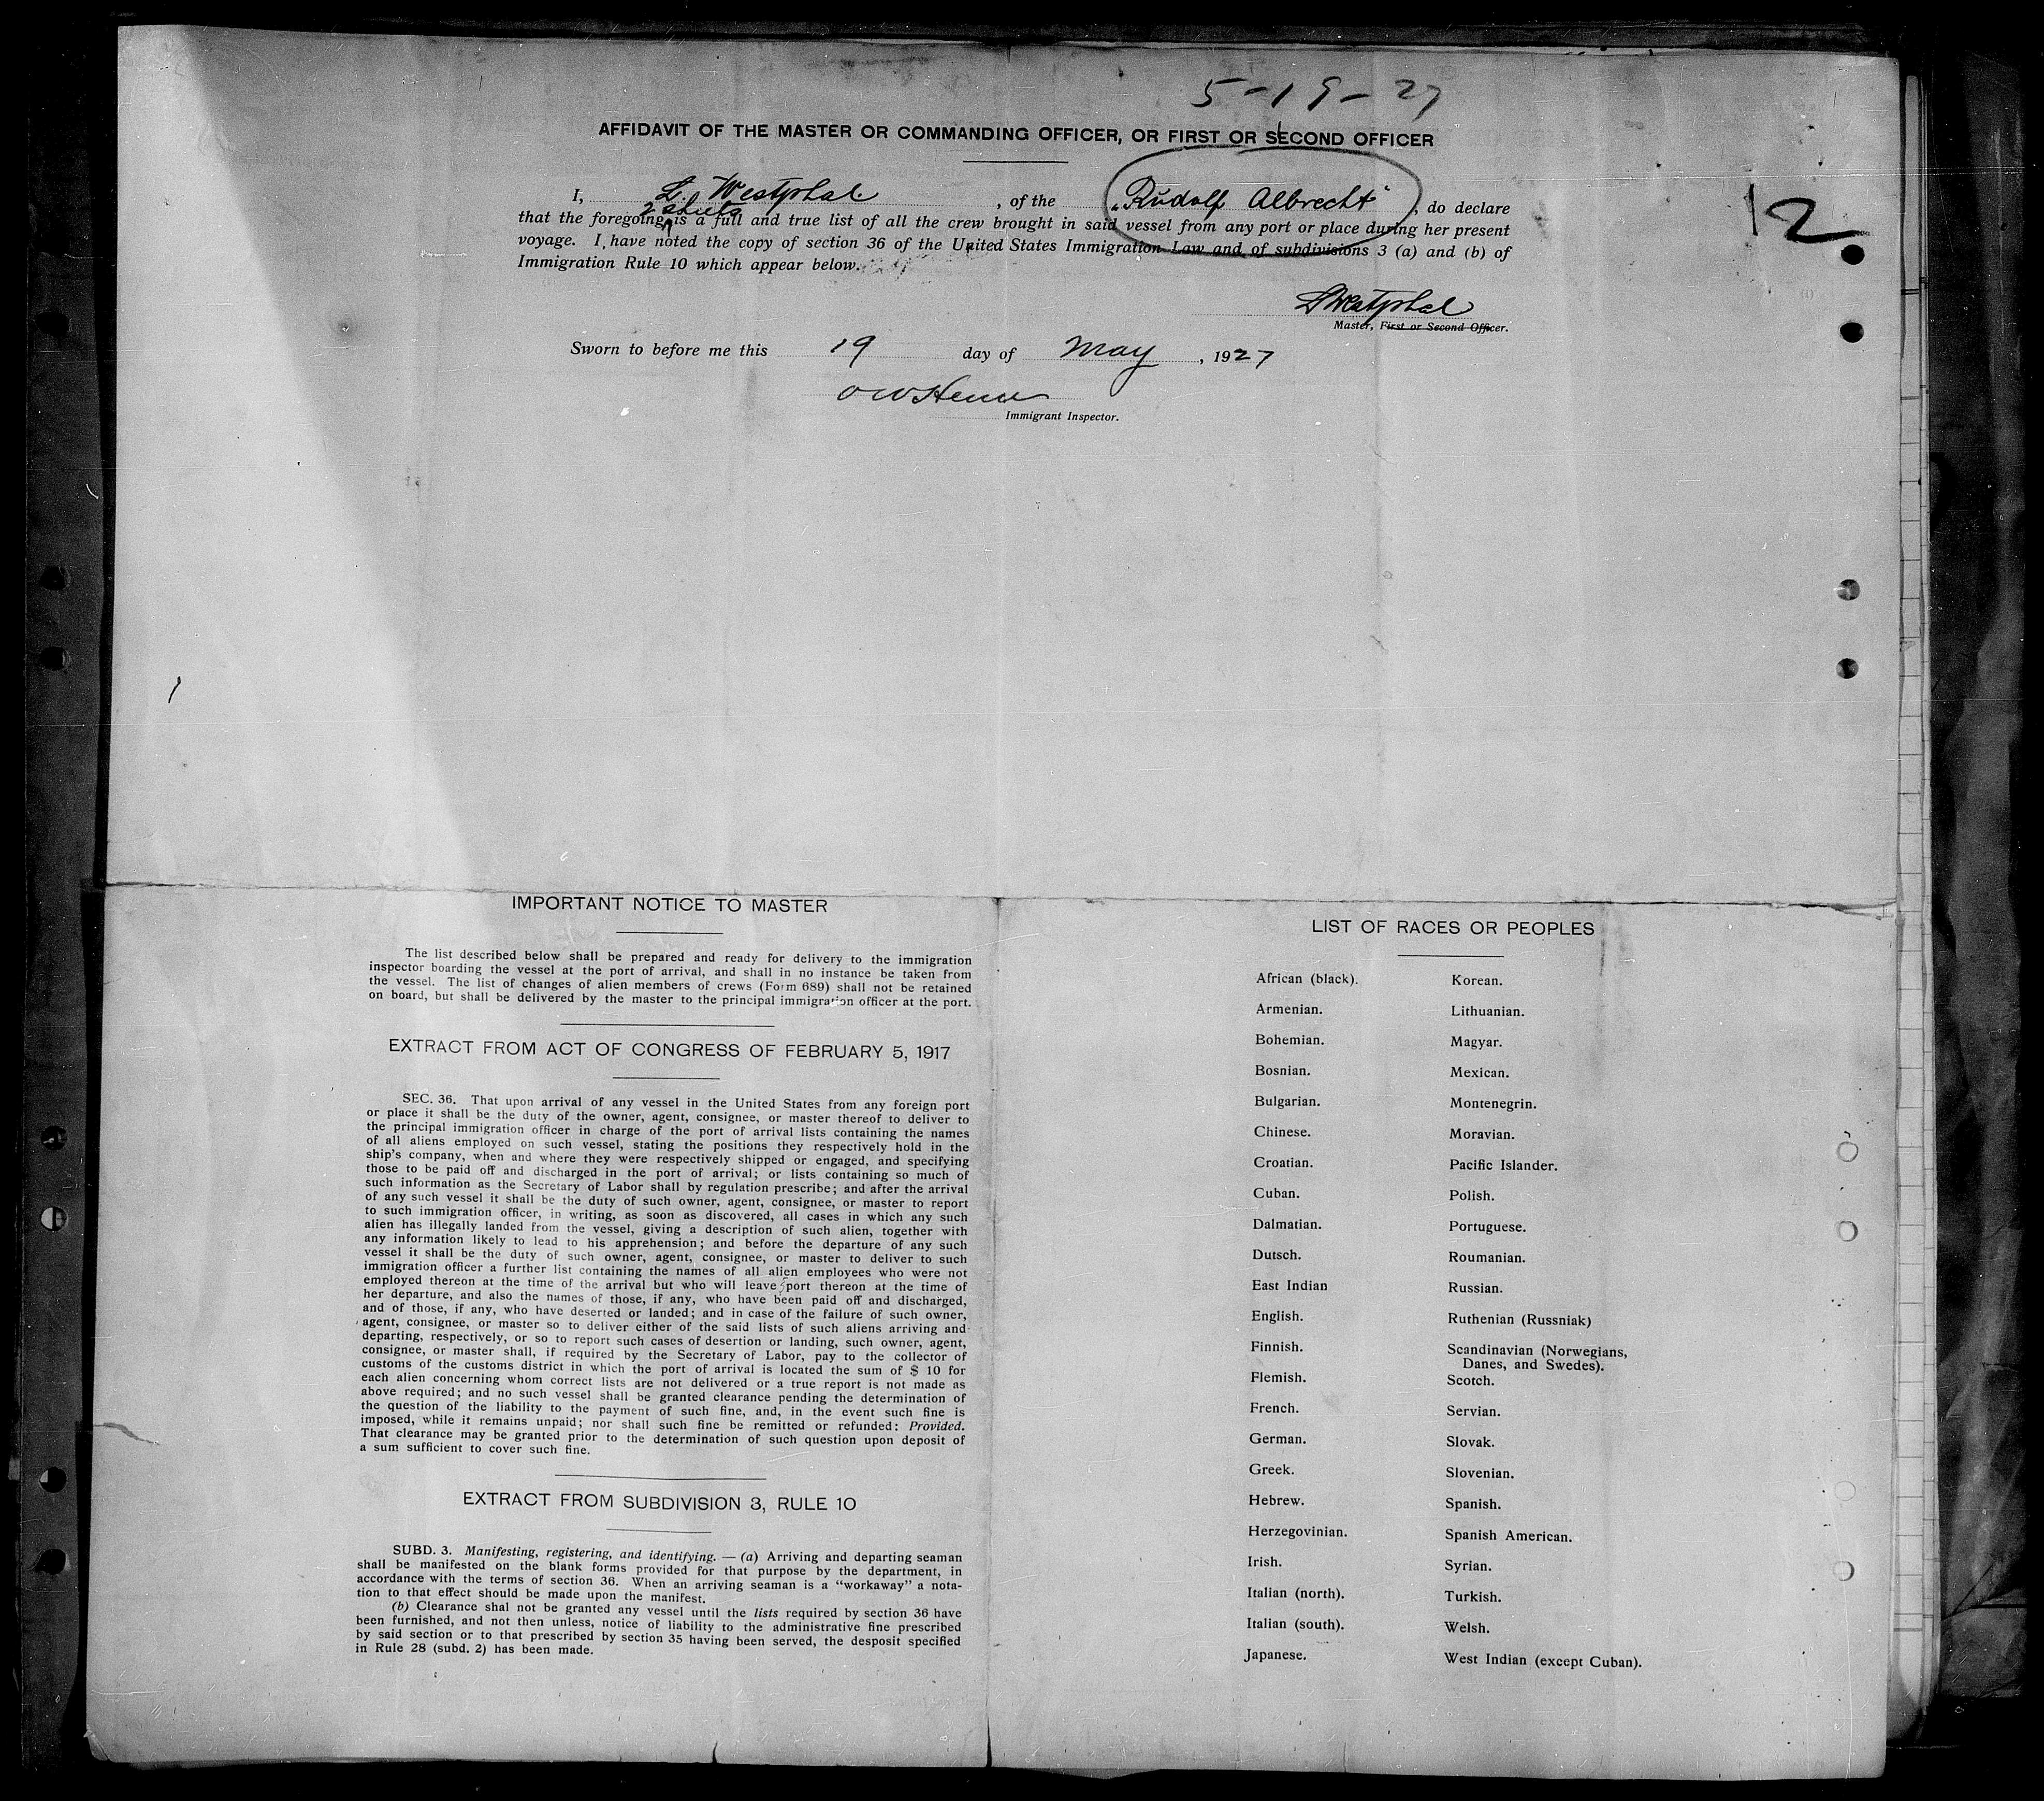 5-19-27
AFFIDAVIT OF THE MASTER OR COMMANDING OFFICER, OR FIRST OR SECOND OFFICER
I, L. Westphal, of the "Rudolf Albrecht", do declare
2 sheets
that the foregoing is a full and true list of all the crew brought in said vessel from any port or place during her present
voyage. I have noted the copy of section 36 of the United States Immigration Law and of subdivisions 3 (a) and (b) of
Immigration Rule 10 which appear below.
12
LWestphal
Master, First or Second Officer.
Sworn to before me this 19 day of May, 1927
Immigrant Inspector.
IMPORTANT NOTICE TO MASTER
The list described below shall be prepared and ready for delivery to the immigration
inspector boarding the vessel at the port of arrival, and shall in no instance be taken from
the vessel. The list of changes of alien members of crews (Form 689) shall not be retained
on board, but shall be delivered by the master to the principal immigration officer at the port.
EXTRACT FROM ACT OF CONGRESS OF FEBRUARY 5, 1917
SEC. 36. That upon arrival of any vessel in the United States from any foreign port
or place it shall be the duty of the owner, agent, consignee, or master thereof to deliver to
the principal immigration officer in charge of the port of arrival lists containing the names
of all aliens employed on such vessel, stating the positions they respectively hold in the
ship's company, when and where they were respectively shipped or engaged, and specifying
those to be paid off and discharged in the port of arrival; or lists containing so much of
such information as the Secretary of Labor shall by regulation prescribe; and after the arrival
of any such vessel it shall be the duty of such owner, agent, consignee, or master to report
to such immigration officer, in writing, as soon as discovered, all cases in which any such
alien has illegally landed from the vessel, giving a description of such alien, together with
any information likely to lead to his apprehension; and before the departure of any such
vessel it shall be the duty of such owner, agent, consignee, or master to deliver to such
immigration officer a further list containing the names of all alien employees who were not
employed thereon at the time of the arrival but who will leave port thereon at the time of
her departure, and also the names of those, if any, who have been paid off and discharged,
and of those, if any, who have deserted or landed; and in case of the failure of such owner,
agent, consignee, or master so to deliver either of the said lists of such aliens arriving and
departing, respectively, or so to report such cases of desertion or landing, such owner, agent,
consignee, or master shall, if required by the Secretary of Labor, pay to the collector of
customs of the customs district in which the port of arrival is located the sum of $ 10 for
each alien concerning whom correct lists are not delivered or a true report is not made as
above required; and no such vessel shall be granted clearance pending the determination of
the question of the liability to the payment of such fine, and, in the event such fine is
imposed, while it remains unpaid; nor shall such fine be remitted or refunded: Provided.
That clearance may be granted prior to the determination of such question upon deposit of
a sum sufficient to cover such fine.
EXTRACT FROM SUBDIVISION 3, RULE 10
SUBD. 3. Manifesting, registering, and identifying. — (a) Arriving and departing seaman
shall be manifested on the blank forms provided for that purpose by the department, in
accordance with the terms of section 36. When an arriving seaman is a "workaway" a nota-
tion to that effect should be made upon the manifest.
(b) Clearance shal not be granted any vessel until the lists required by section 36 have
been furnished, and not then unless, notice of liability to the administrative fine prescribed
by said section or to that prescribed by section 35 having been served, the desposit specified
in Rule 28 (subd. 2) has been made.
LIST OF RACES OR PEOPLES
African (black).
Armenian.
Bohemian.
Bosnian.
Bulgarian.
Chinese.
Croatian.
Cuban.
Dalmatian.
Dutsch.
East Indian
English.
Finnish.
Flemish.
French.
German.
Greek.
Hebrew.
Herzegovinian.
Irish.
Italian (north).
Italian (south).
Japanese.
Korean.
Lithuanian.
Magyar.
Mexican.
Montenegrin.
Moravian.
Pacific Islander.
Polish.
Portuguese.
Roumanian.
Russian.
Ruthenian (Russniak)
Scandinavian (Norwegians,
Danes, and Swedes).
Scotch.
Servian.
Slovak.
Slovenian.
Spanish.
Spanish American.
Syrian.
Turkish.
Welsh.
West Indian (except Cuban).